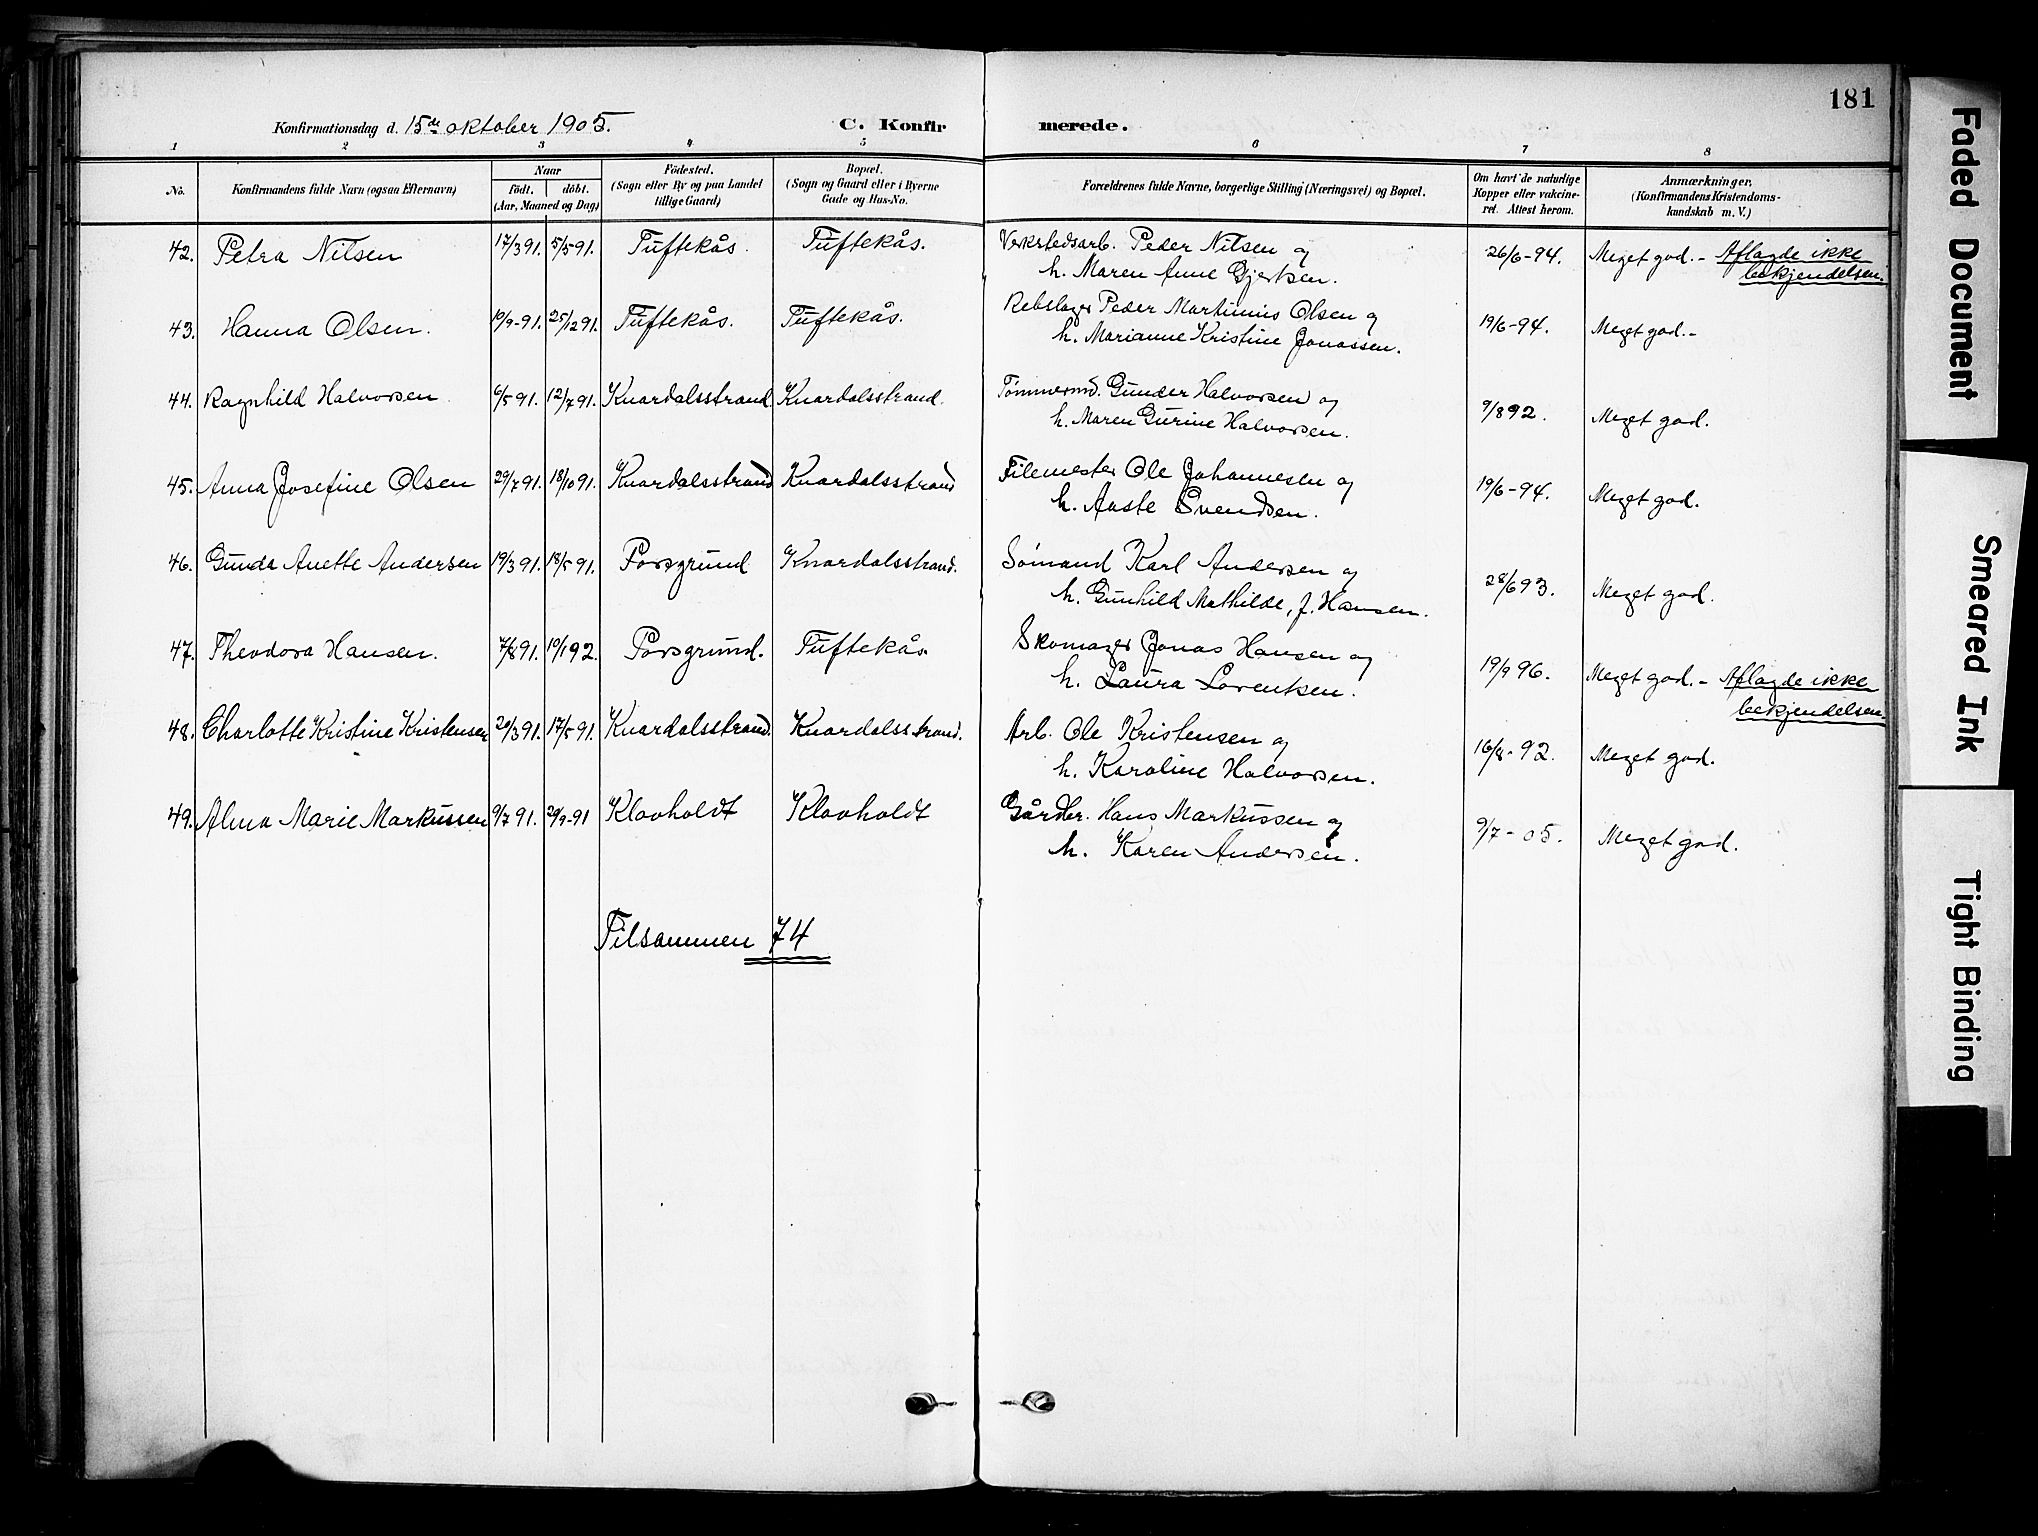 181
Konfirmationsdag d. 15de oktober 1905. C. Konfirmerede.
1 2 3 4 5 6 7 8
No. Konfirmandens fulde Navn (ogsaa Efternavn) Naar födt. döbt. (Aar, Maaned og Dag) Födested. (Sogn eller By og paa Landet tillige Gaard) Bopæl. (Sogn og Gaard eller i Byerne Gade og Hus-No. Forældrenes fulde Navne, borgerlige Stilling (Næringsvei) og Bopæl. Om havt de naturlige Kopper eller vakcineret. Attest herom. Anmærkninger. (Konfirmandens Kristendomskundskab m. V.)
42. Petra Nilsen 17/3 91. 5/5 91. Tuftekås. Tuftekås. Verkstedsarb. Peder Nilsen og 26/6-94. Meget god. - Aflagde ikke
h. Maren Anne Gjertsen. bekjendelsen.
43. Hanna Olsen. 19/9-91. 25/2 91. Tuftekås. Tuftekås. Rebslager Peder Martinius Olsen og 19/6-94. Meget god. -
h. Marianne Kristine Jonassen.
44. Ragnhild Halvorsen 6/5 91. 12/7 91. Knardalsstrand Knardalsstrand. Tømmermd. Gunder Halvorsen og 9/8 92. Meget god.
h. Maren Gurine Halvorsen.
45. Anna Josefine Olsen 29/7 91. 18/10 91. Knardalsstrand Knardalsstrand Filemester Ole Johannesen og 19/6-94. Meget god.
h. Aaste Svendsen.
46. Gunda Anette Andersen 19/3 91. 18/5 91. Porsgrund Knardalsstrand. Sømand Karl Andersen og 28/6 93. Meget god.
h. Gunhild Mathilde, f. Hansen.
47. Theodora Hansen. 7/8 91. 10/1 92. Porsgrund. Tuftekås Skomager Jonas Hansen og 19/9 96. Meget god. - Aflagde ikke
h. Laura Lorentsen. bekjendelsen.
48. Charlotte Kristine Kristensen 20/3 91. 17/5 91. Knardalsstrand. Knardalsstrand. Arb. Ole Kristensen og 16/8-92. Meget god.
h. Karoline Halvorsen.
49. Alma Marie Markussen 9/7 91. 20/9-91 Klovholdt Klovholdt Gårdbr. Hans Markussen og 9/7-05. Meget god.
h. Karen Andersen.
Tilsammen 74
Faded Document
Smeared Ink
Tight Binding